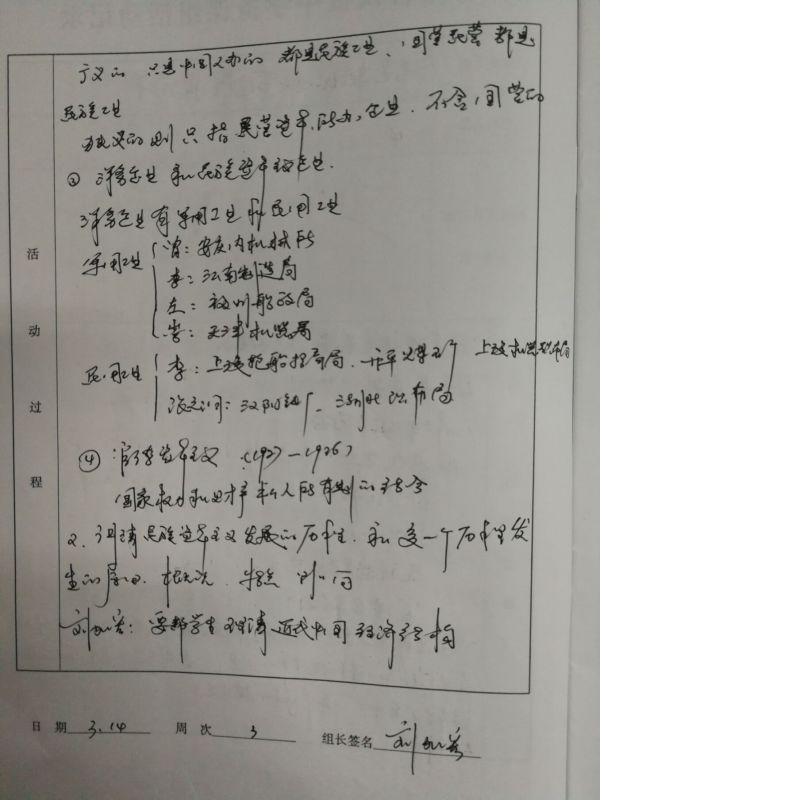 广义的 只要中国人办的 都是民族工业、国营民营 都是
民族工业
狭义的则只指民营资本所办企业. 不含国营的
③ 洋务企业和民族资本主义企业.
洋务企业有军用工业和民用工业
活
动
过
程
军用工业
曾: 安庆内机械所
李: 江南制造局
左: 福州船政局
李: 天津机器局
民用工业
李: 上海轮船招商局、开平煤矿 上海机器织布局
张之洞: 汉阳铁厂、湖北织布局
④ 官僚资本主义 (1927—1936)
国家权力和财产私人所有制的结合
2. 理清民族资本主义发展的历程. 和每一个历程发
生的原因. 概况. 特点 时间
刘: 要帮学生理清近代中国经济结构
日 期 3.14 周 次 3 组长签名 刘